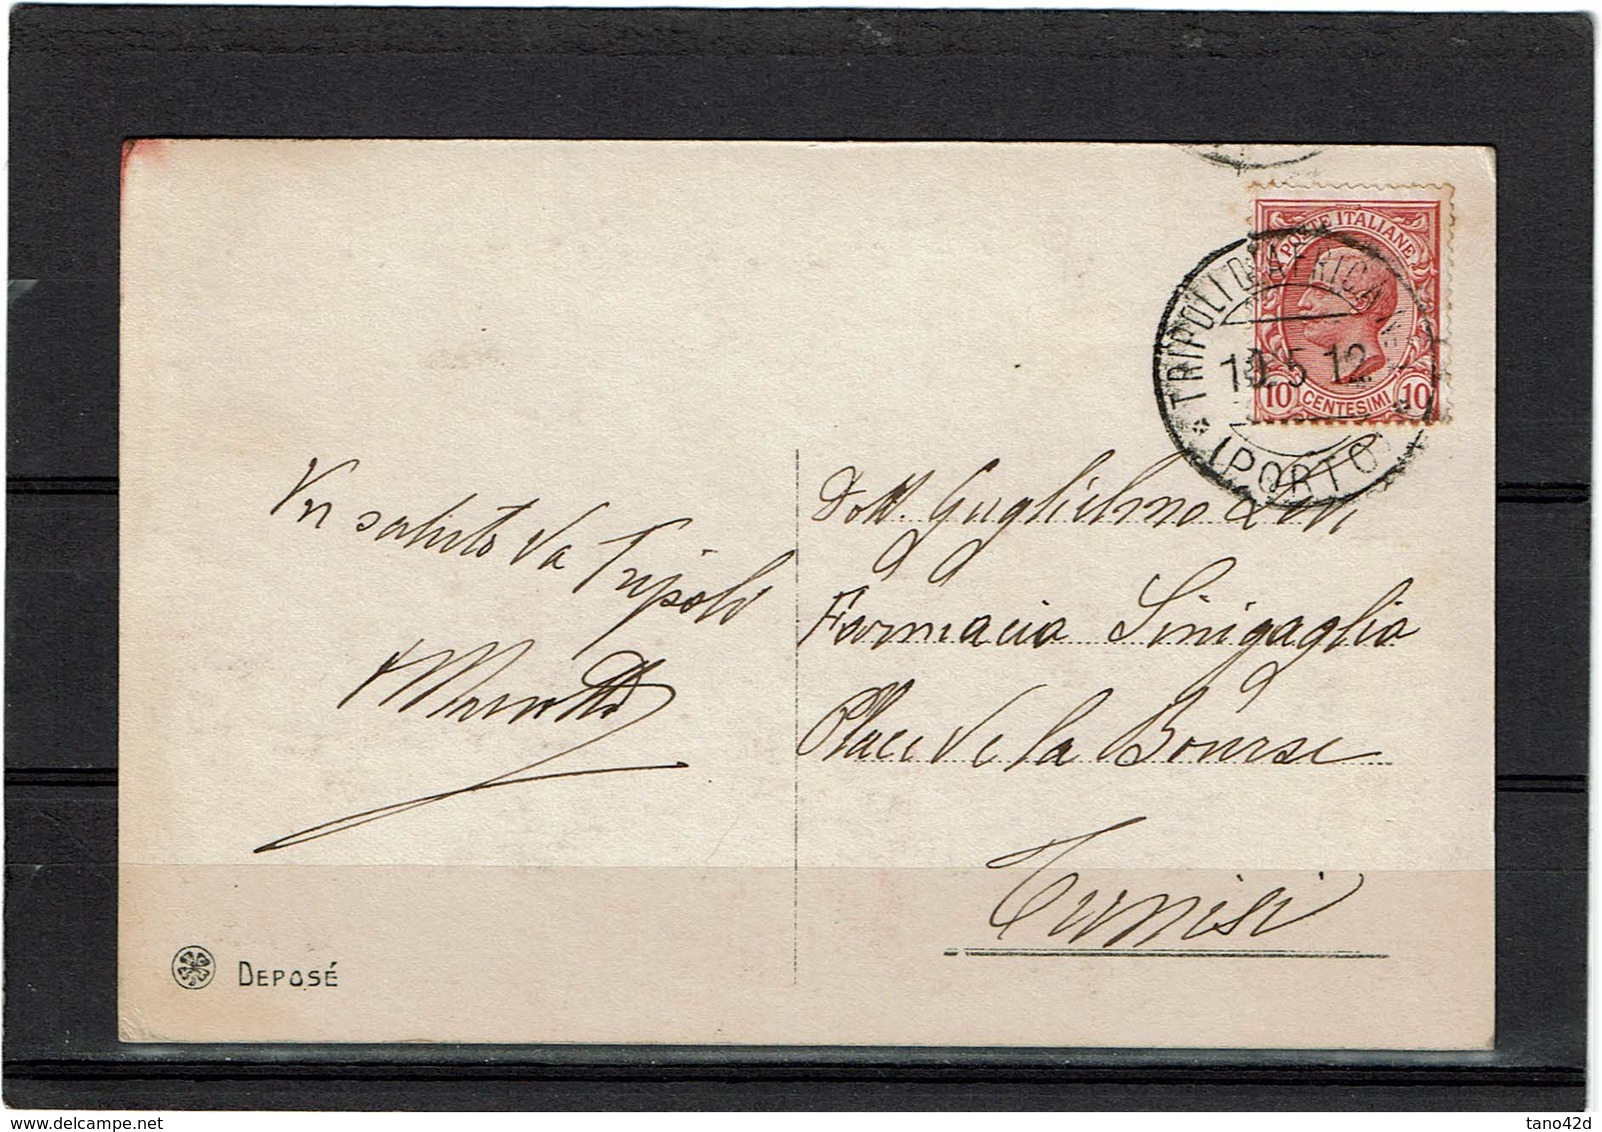 POSTE ITALIANE
10 CENTESIMI 10
* TRIPOLI D'AFRICA
10.5 12
(PORTO) *
Un saluto da Tripoli
Dott. Guglielmo Levi
Farmacia Sinigaglia
Place de la Bourse
Tunisi
DEPOSÉ
delcampe.net
tano42d